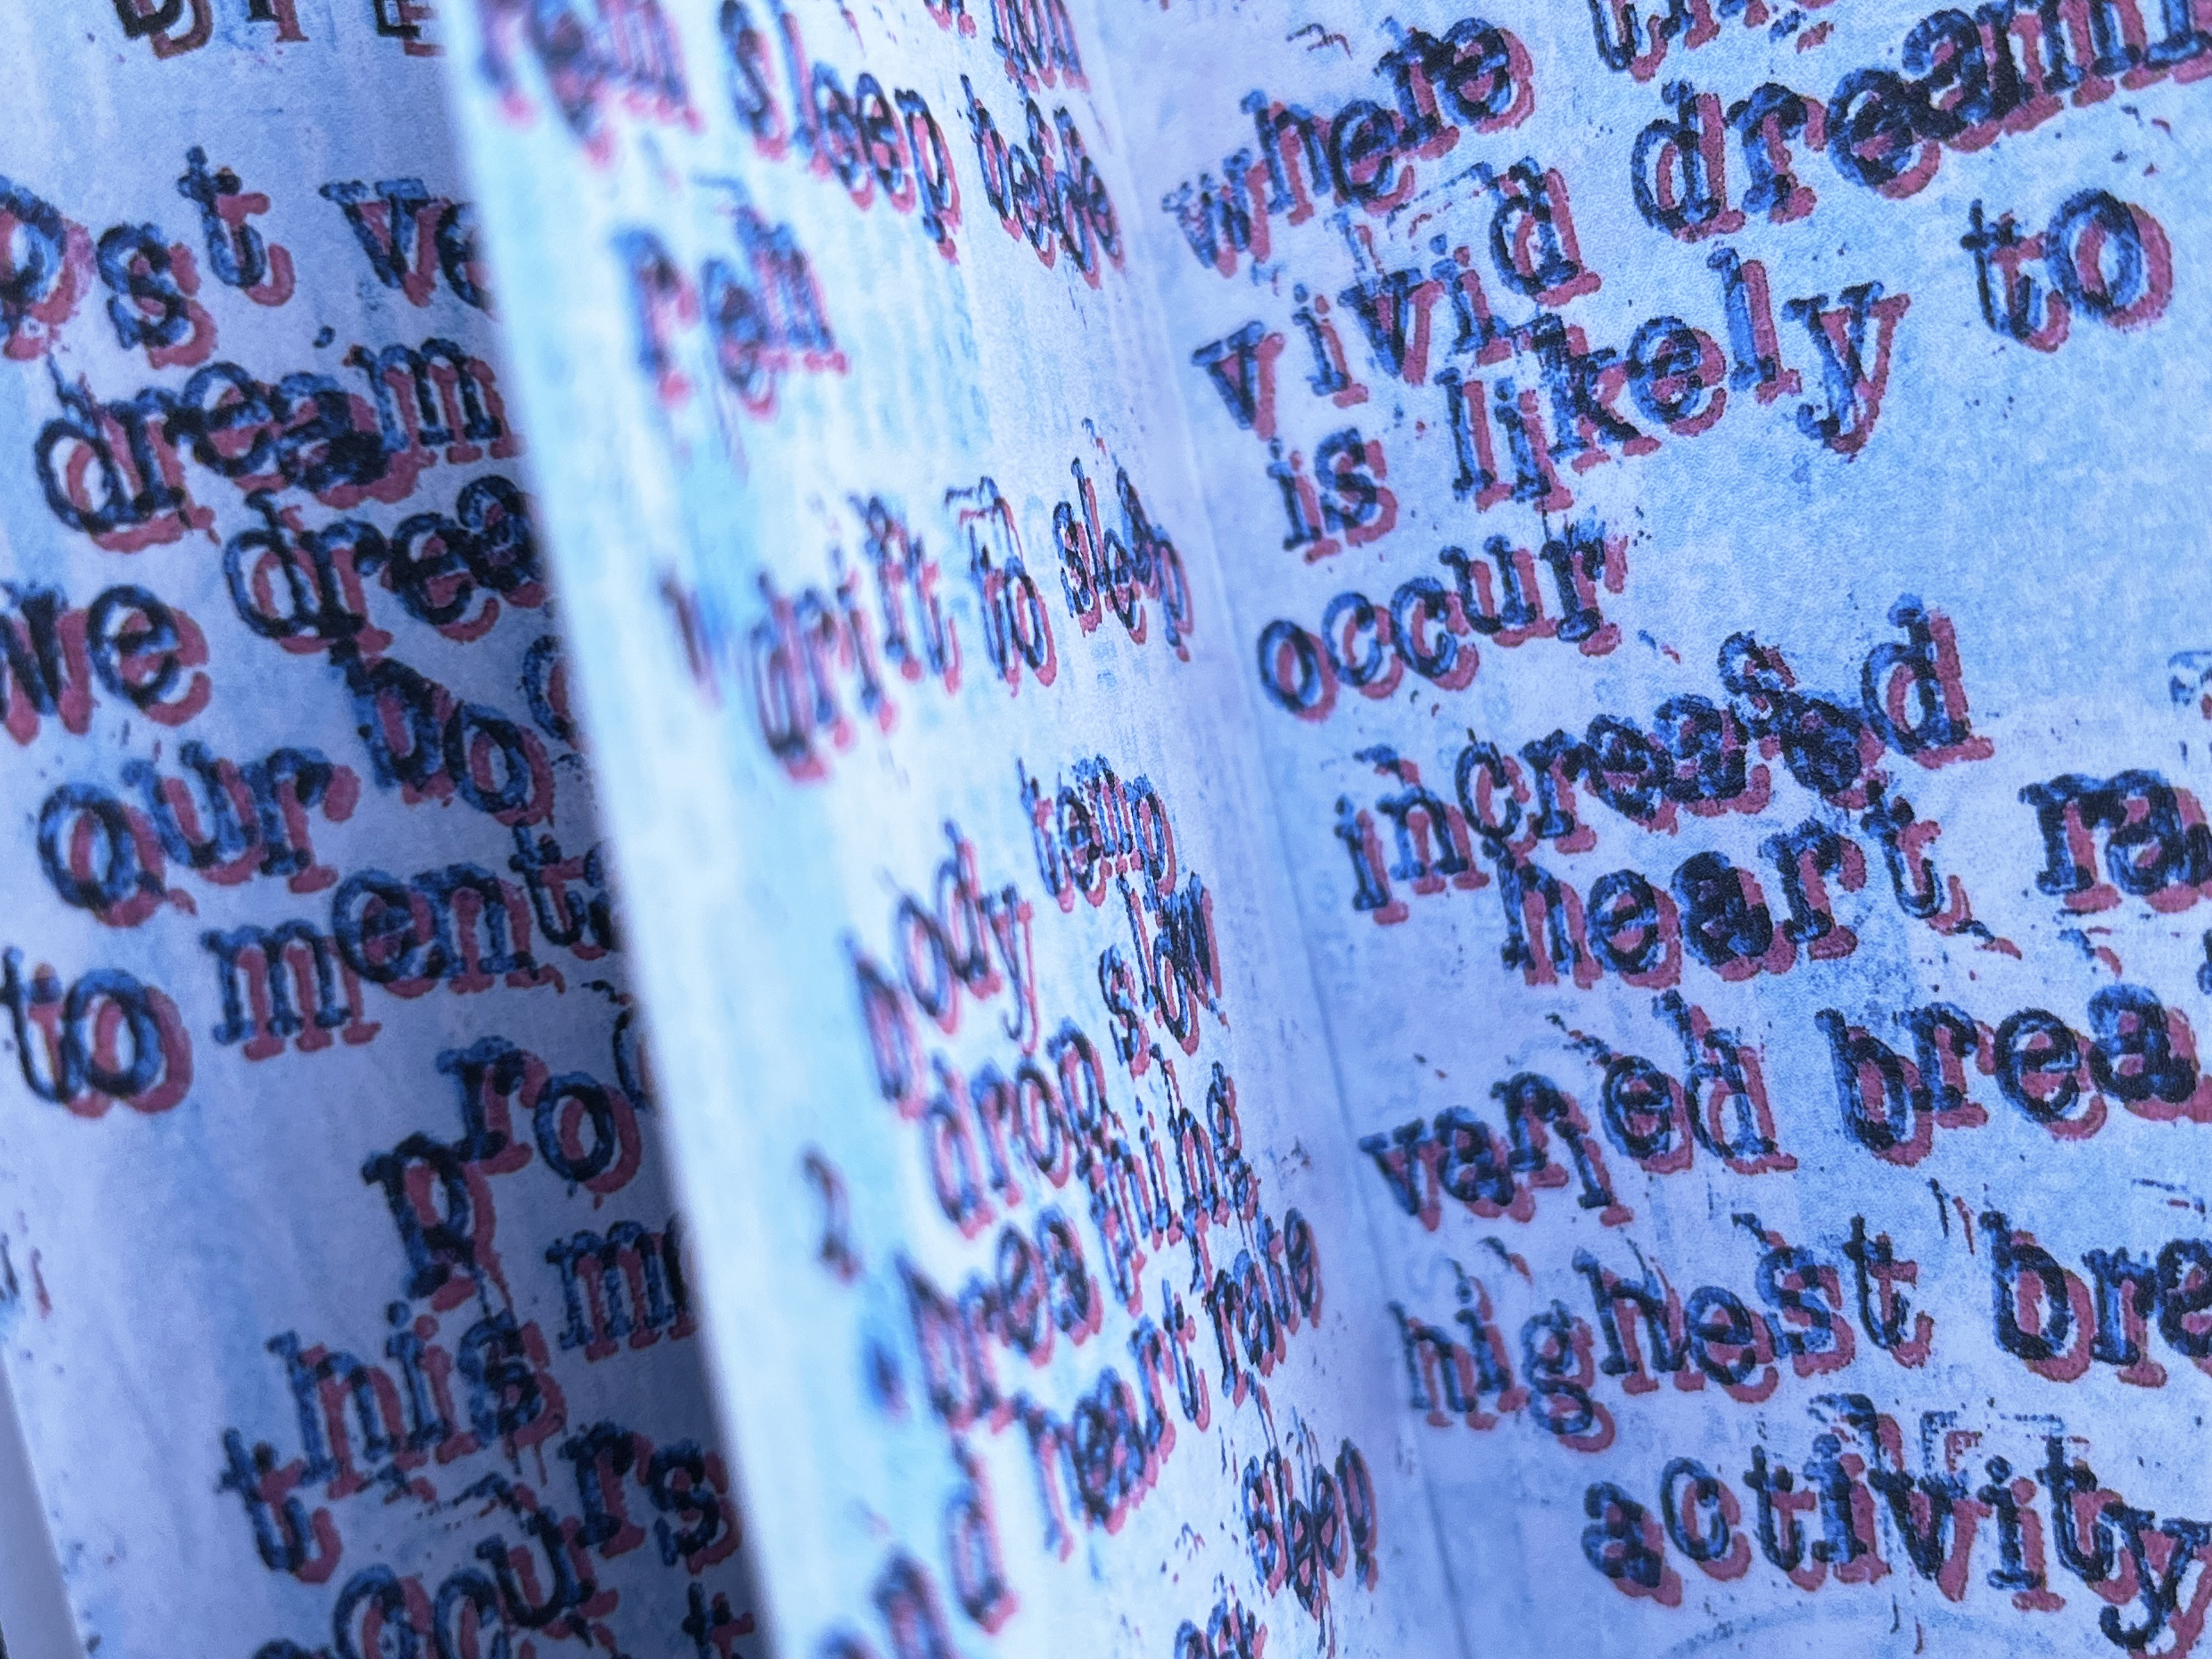 ost ve
dream
we drea
our bo
to ment
pro
this m
occurs
sleep before
rem
drift to sleep
body temp
drop slow
breathing
heart rate
and
sleep
where
vivid dreami
is likely to
occur
increased
heart ra
varied brea
highest bre
activity